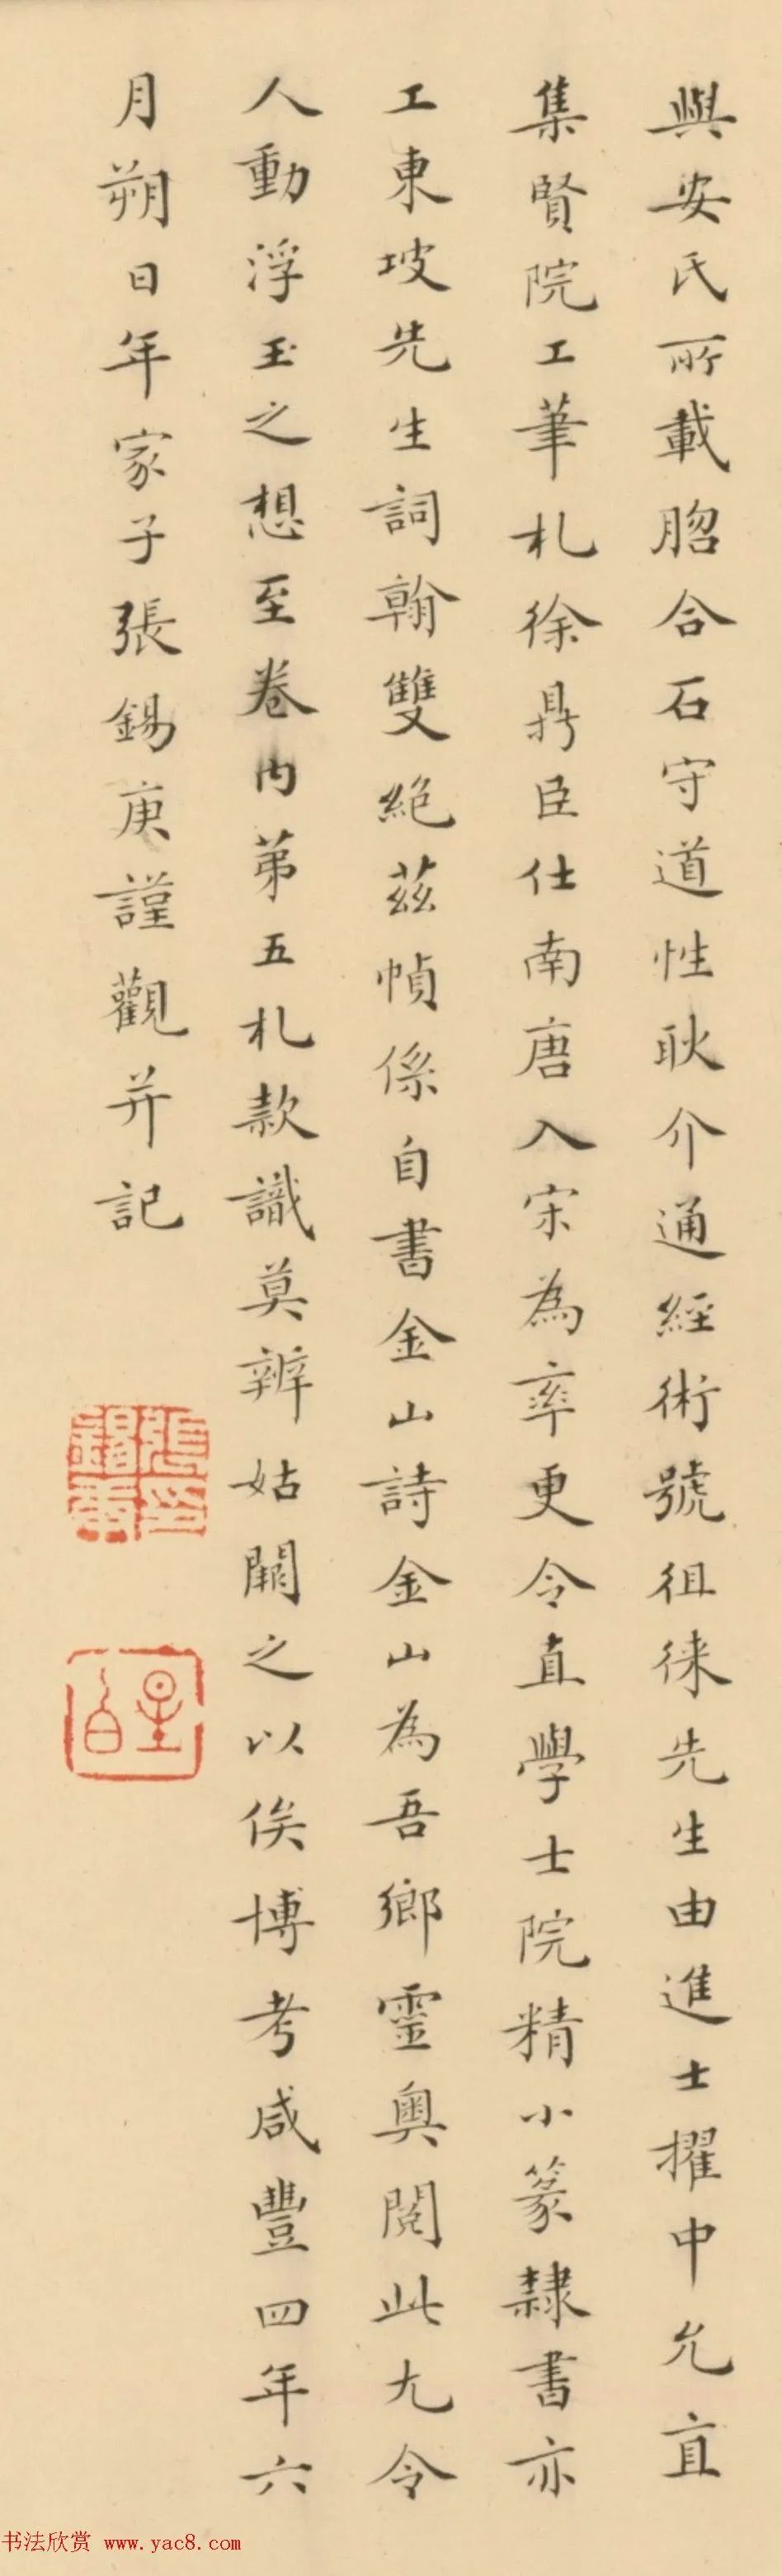 與安氏所載脗合石守道性耿介通經術號徂徠先生由進士擢中允直
集賢院工筆札徐鼎臣仕南唐入宋為率更令直學士院精小篆隸書亦
工東坡先生詞翰雙絕茲幀係自書金山詩金山為吾鄉靈奧閱此尤令
人動浮玉之想至卷內第五札款識莫辨姑闕之以俟博考咸豐四年六
月朔日年家子張錫庚謹觀并記
張錫庚印
星白
书法欣赏 www.yac8.com